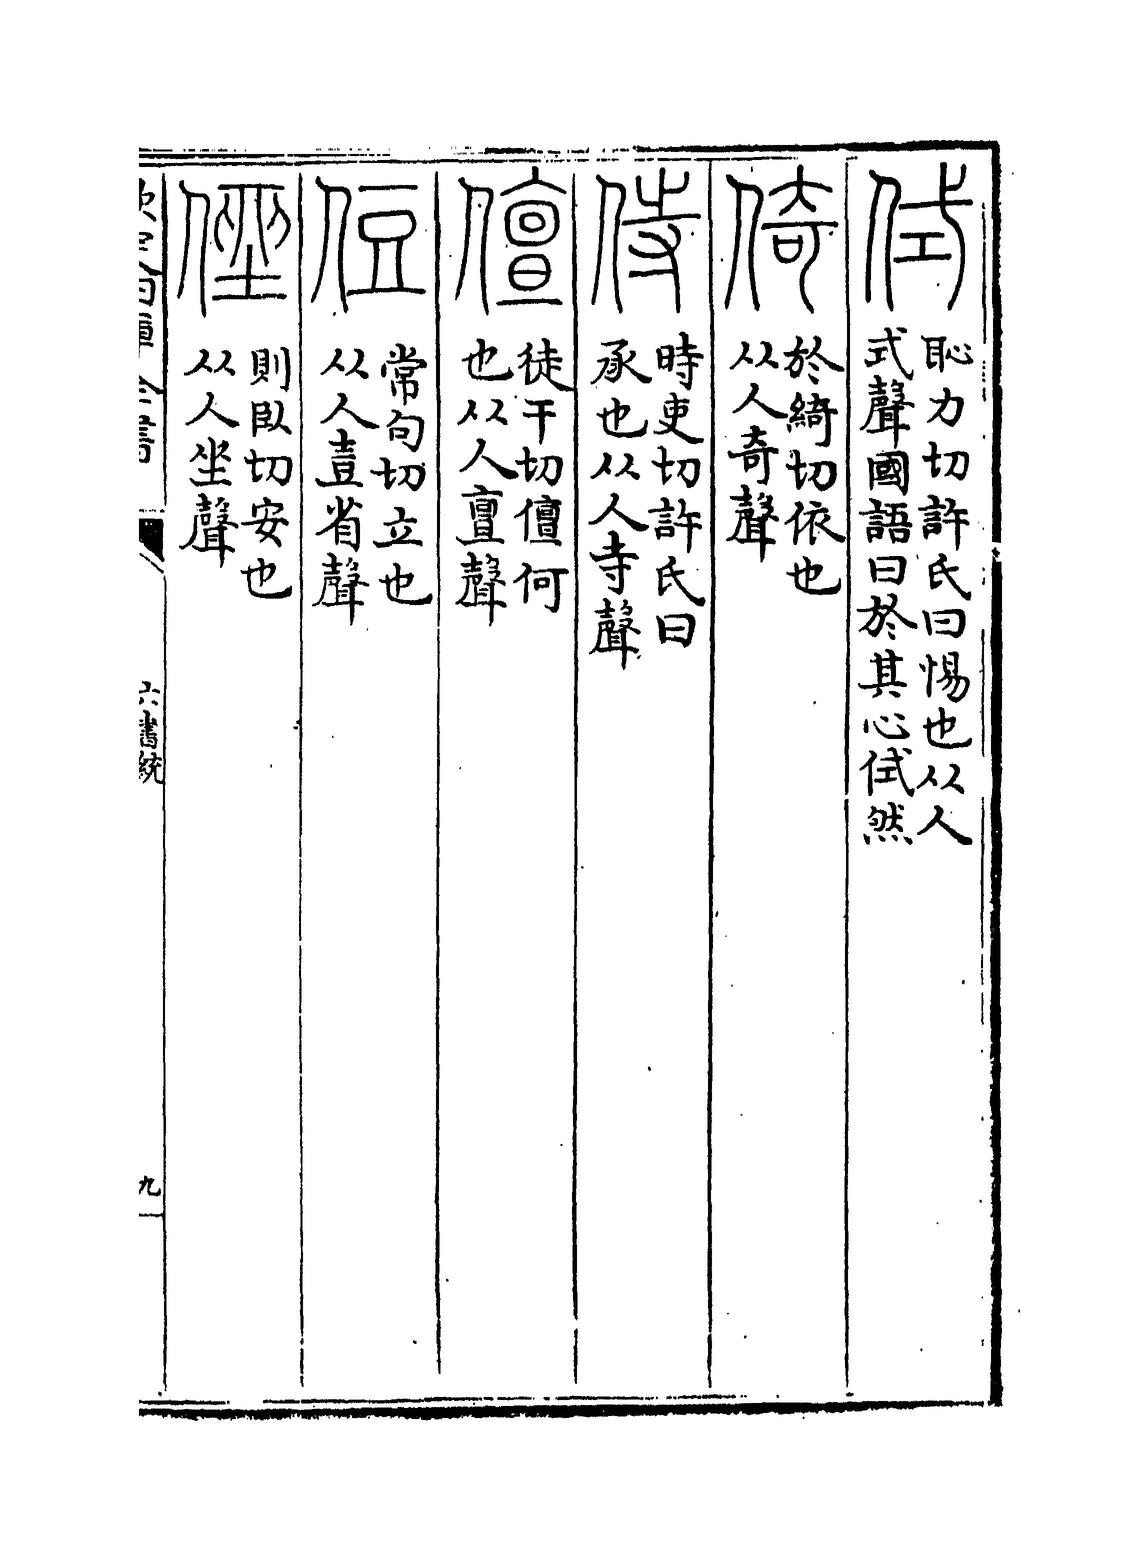 侙
恥力切許氏曰惕也从人
式聲國語曰於其心侙然
倚
於綺切依也
从人奇聲
侍
時吏切許氏曰
承也从人寺聲
儃
徒干切儃何
也从人亶聲
侸
常句切立也
从人壴省聲
侳
則臥切安也
从人坐聲
欽定四庫全書
六書統
九